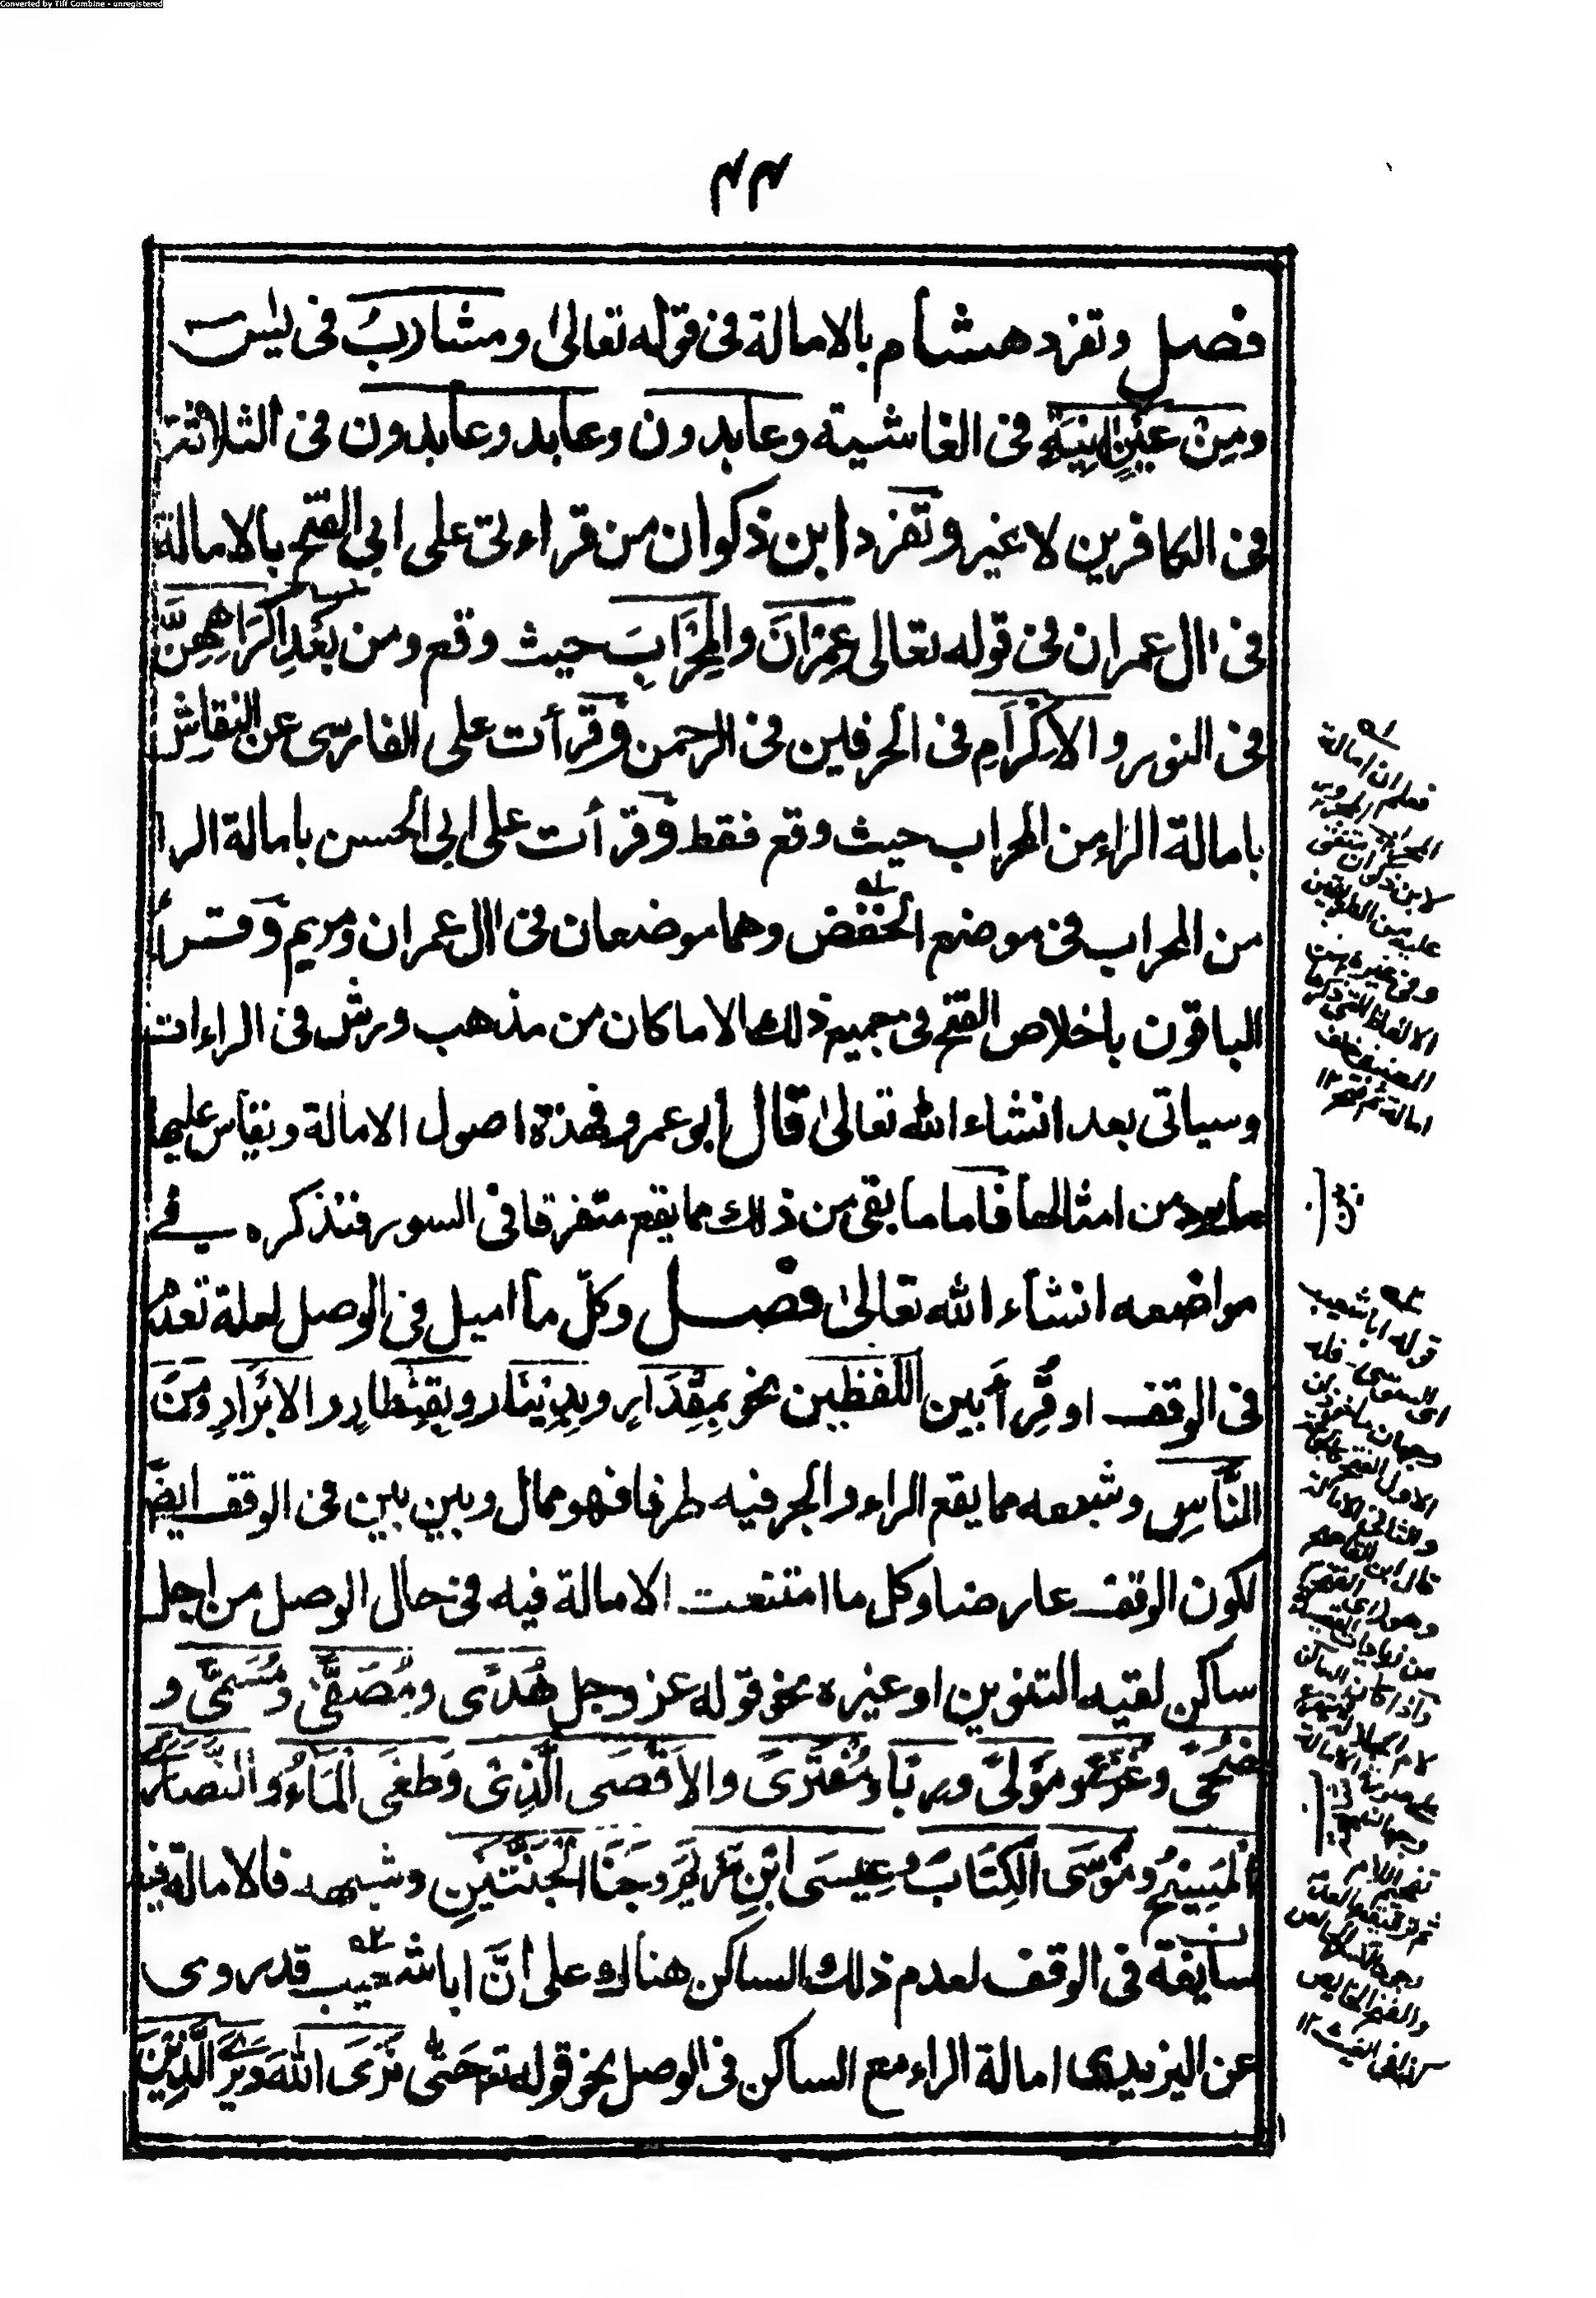 Converted by Tiff Combine - unregistered
۴۴
فصل وتفرد هشام بالامالة فى قوله تعالىٰ ومشاربُ فى يٰسٓ
ومِنْ عَيْنٍ اٰنِيَةٍ فى الغاشية وعابدون وعابد وعابدون فى الثلاثة
فى الكافرين لا غير وتفرد ابن ذكوان من قراءتى على ابى الفتح بالامالة
فى اٰل عمران فى قوله تعالى عِمْرَانَ والمِحْرَابَ حيث وقع ومن بَعْدِ اِكْرَاهِهِنَّ
فى النور والاِكْرَامِ فى الحرفين فى الرحمن وقرأت على الفارسى عن النقاش
بامالة الراء من المحراب حيث وقع فقط وقرأت على ابى الحسن بامالة الرا
من المحراب فى موضع الخفض وهما موضعان فى اٰل عمران ومريم وقرأ
الباقون باخلاص الفتح فى جميع ذلك الا ما كان من مذهب ورش فى الراءات
وسياتى بعد انشاء الله تعالىٰ قال ابو عمرو فهذة اصول الامالة ويقاس عليها
ما يرد من امثالها فاما ما بقى من ذلك مما يقع متفرقا فى السور فنذكره فے
مواضعه انشاء الله تعالىٰ فصل وكلّ ما اميل فى الوصل لعلة تعدم
فى الوقف او قُرِأ بين اللفظين نحو بِمِقْدَارٍ وبِدِيْنَارٍ وبِقِنْطَارٍ والاَبْرَارِ ومِنَ
النَّاسِ وشبهه مما يقع الراء والجر فيه طرفا فهو ممال وبين بين فى الوقف ايضًا
لكون الوقف عارضا وكل ما امتنعت الامالة فيه فى حال الوصل من اجل
ساكن لقيه التنوين او غيره نحو قوله عز وجل هُدًى ومُصَفًّى ومُسَمًّى و
ضُحًى وغُزًّى ومَوْلًى ورِبًا ومُفْتَرًى والاَقْصَى الَّذِىْ وَطَغَى الْمَاءُ والنَّصَارَى
الْمَسِيْحُ ومُوْسَى الْكِتَابَ وعِيسَى ابْنِ مَرْيَمَ وجَنَا الْجَنَّتَيْنِ وشبهه فالامالة فيه
سائغة فى الوقف لعدم ذلك الساكن هناك على انَّ ابا شعيب قد روى
عن اليزيدى امالة الراء مع الساكن فى الوصل نحو قوله تع حَتّٰى نَرَى اللهَ وَيَرَى الَّذِيْنَ
فعلم ان امالة
المحراب المجرور
متفق
لابن ذكوان
عليه من الطريقين
وفى غيره من
الالفاظ التى ذكرها
المصنف خلف
امالة ثم فتح ١٢
قوله ابا شعيب
اى السوسى فله
وجهان
الاول الفتح
والثانى الامالة